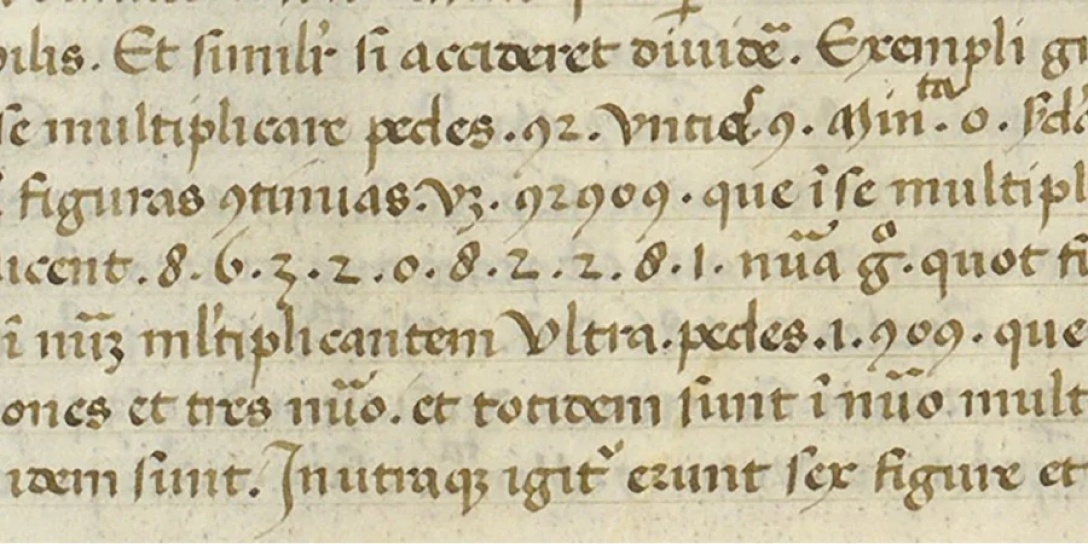 ilis. Et similr̃ si accideret diuidẽ. Exempli gr
se multiplicare pedes .92. Vntias .9. Minᵗᵃ. 0. s̃cd
figuras ꝯtinuas. Vꝫ. 92909. que ĩ se multipl
icent .8.6.3.2.0.8.2.2.8.1. nũa g̊. quot
ĩ nũꝫ ml̃tiplicantem Vltra. pedes .i. 909. que
ones et tres nũo. et totidem sunt ĩ nũo mult
idem sunt. In utraqꝫ igit᷑ erunt sex figure et